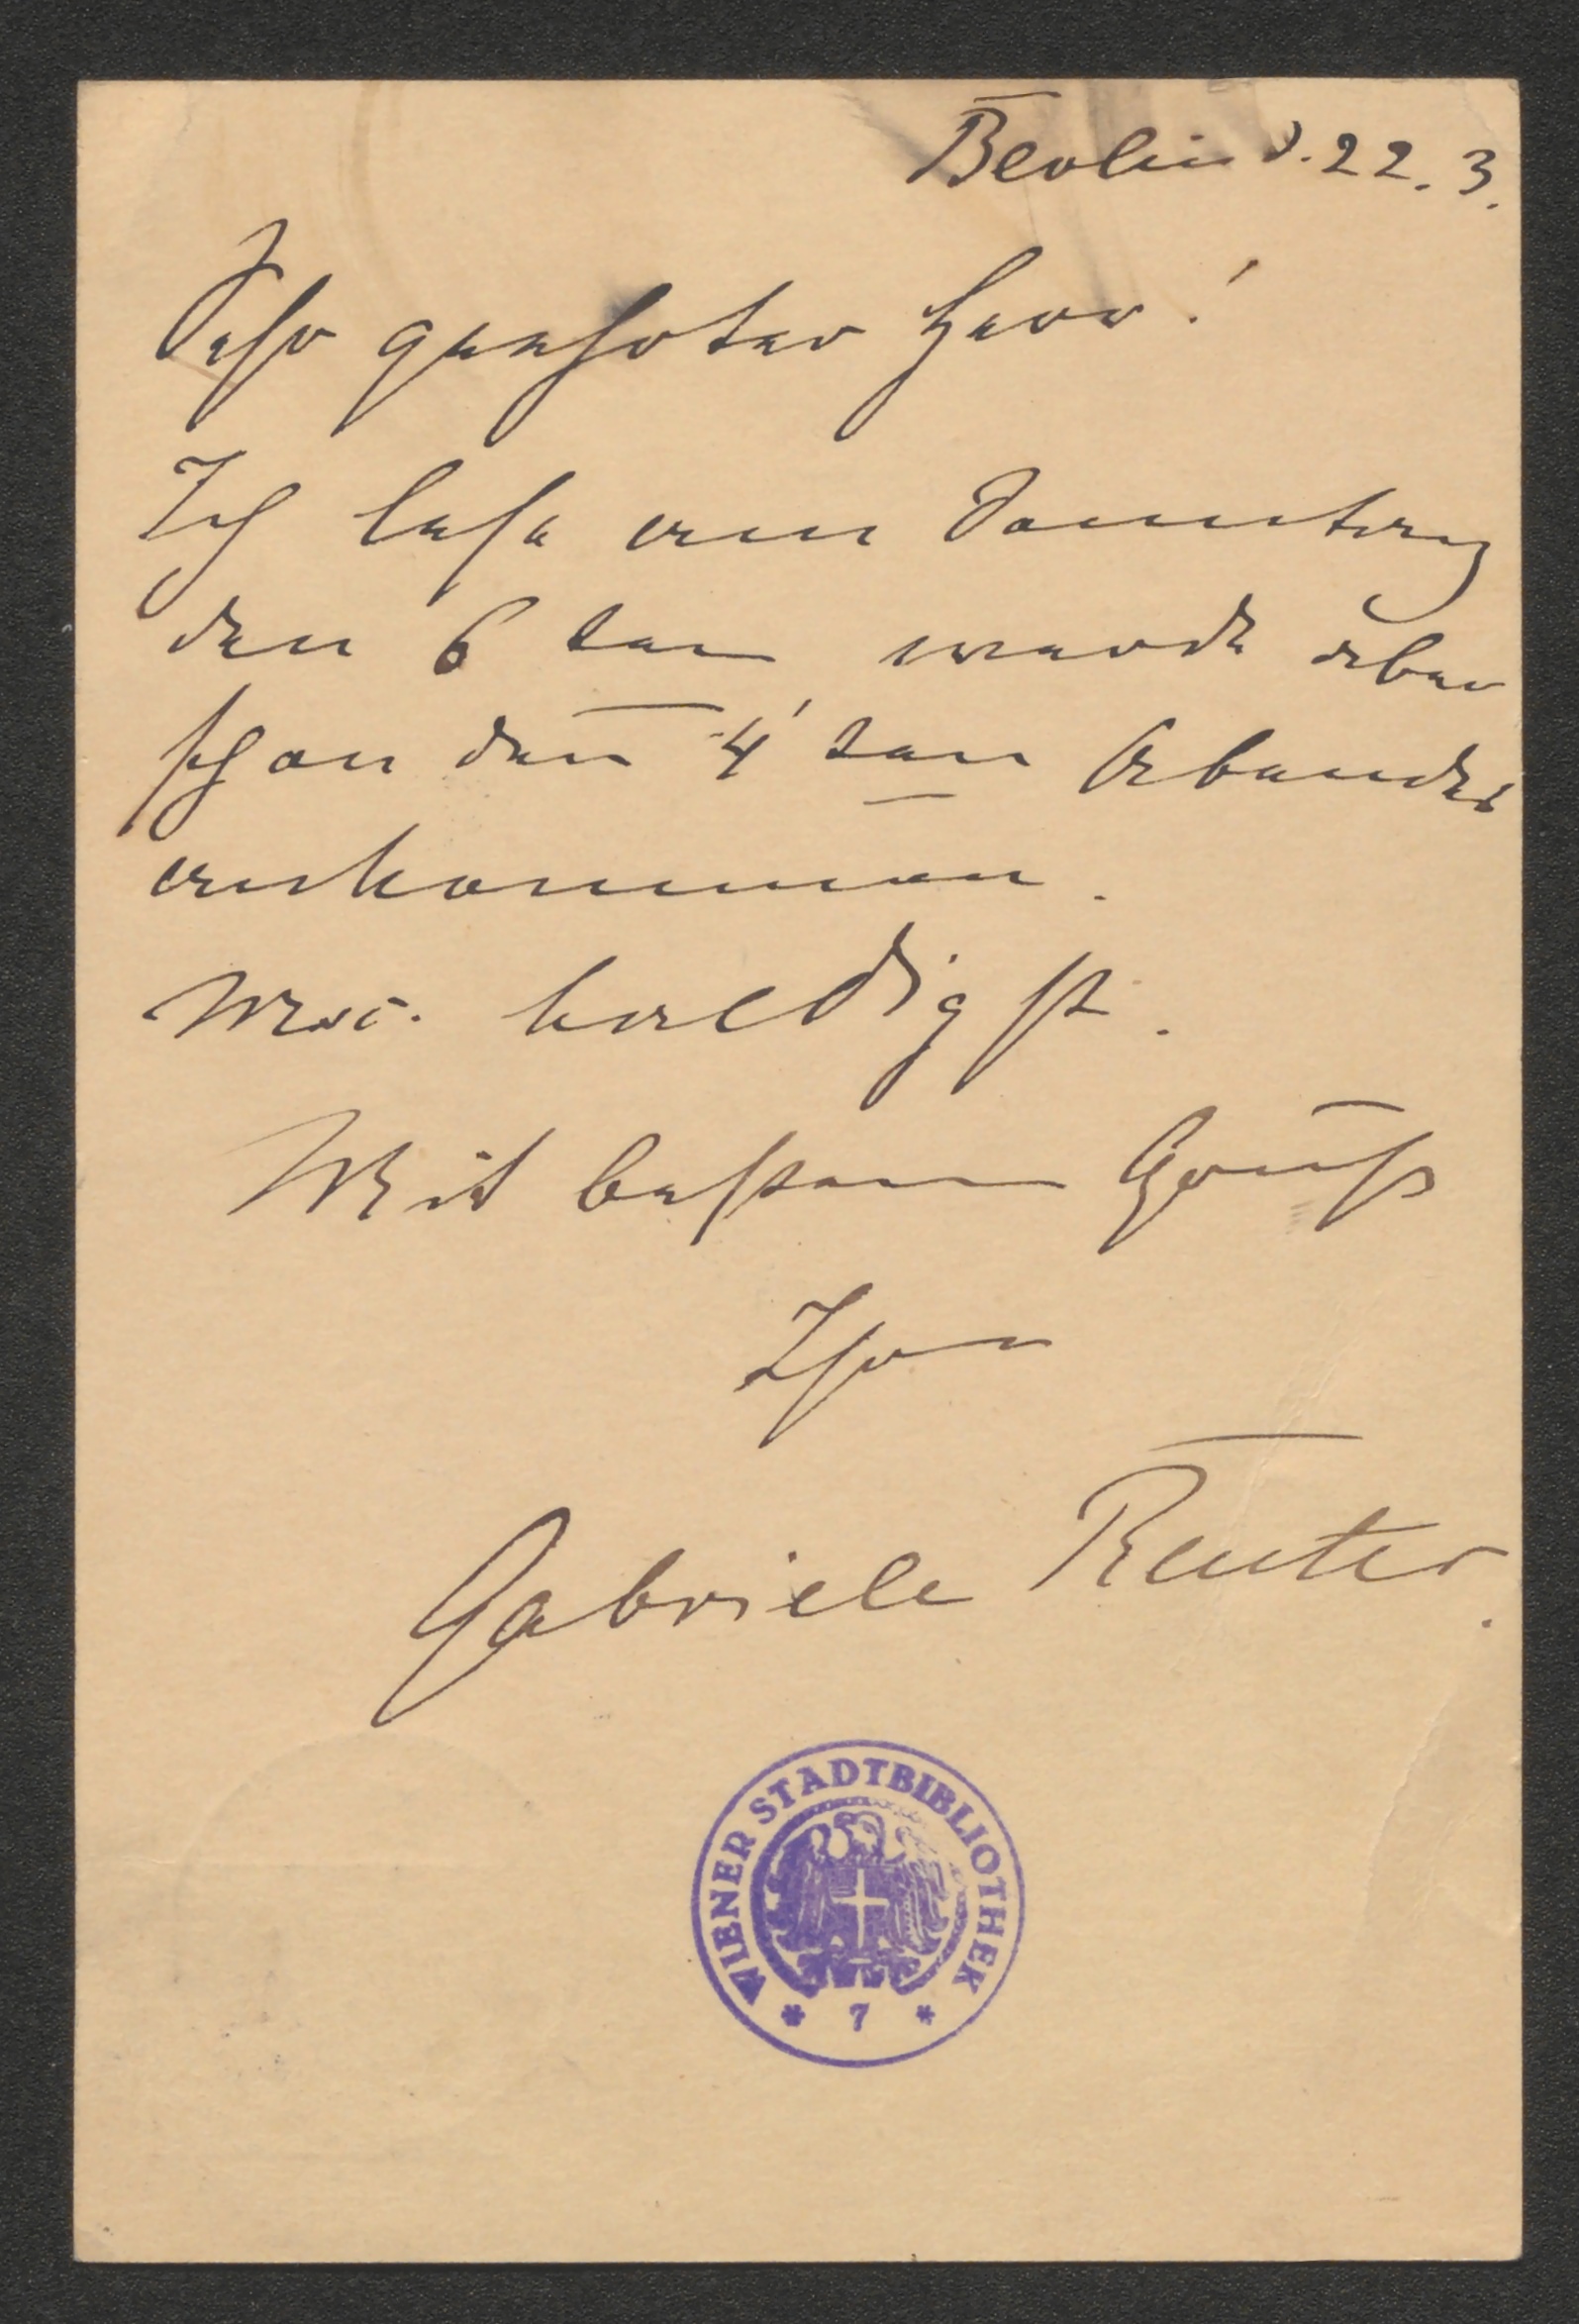 Berlin d. 22. 3.
Sehr geehrter Herr!
Ich lese am Sonntag
den 6 ten werde aber
schon den 4' ten Abends
ankommen.
Msc. baldigst.
Mit bestem Gruß
Ihre
Gabriele Reuter.
WIENER STADTBIBLIOTHEK
* 7 *